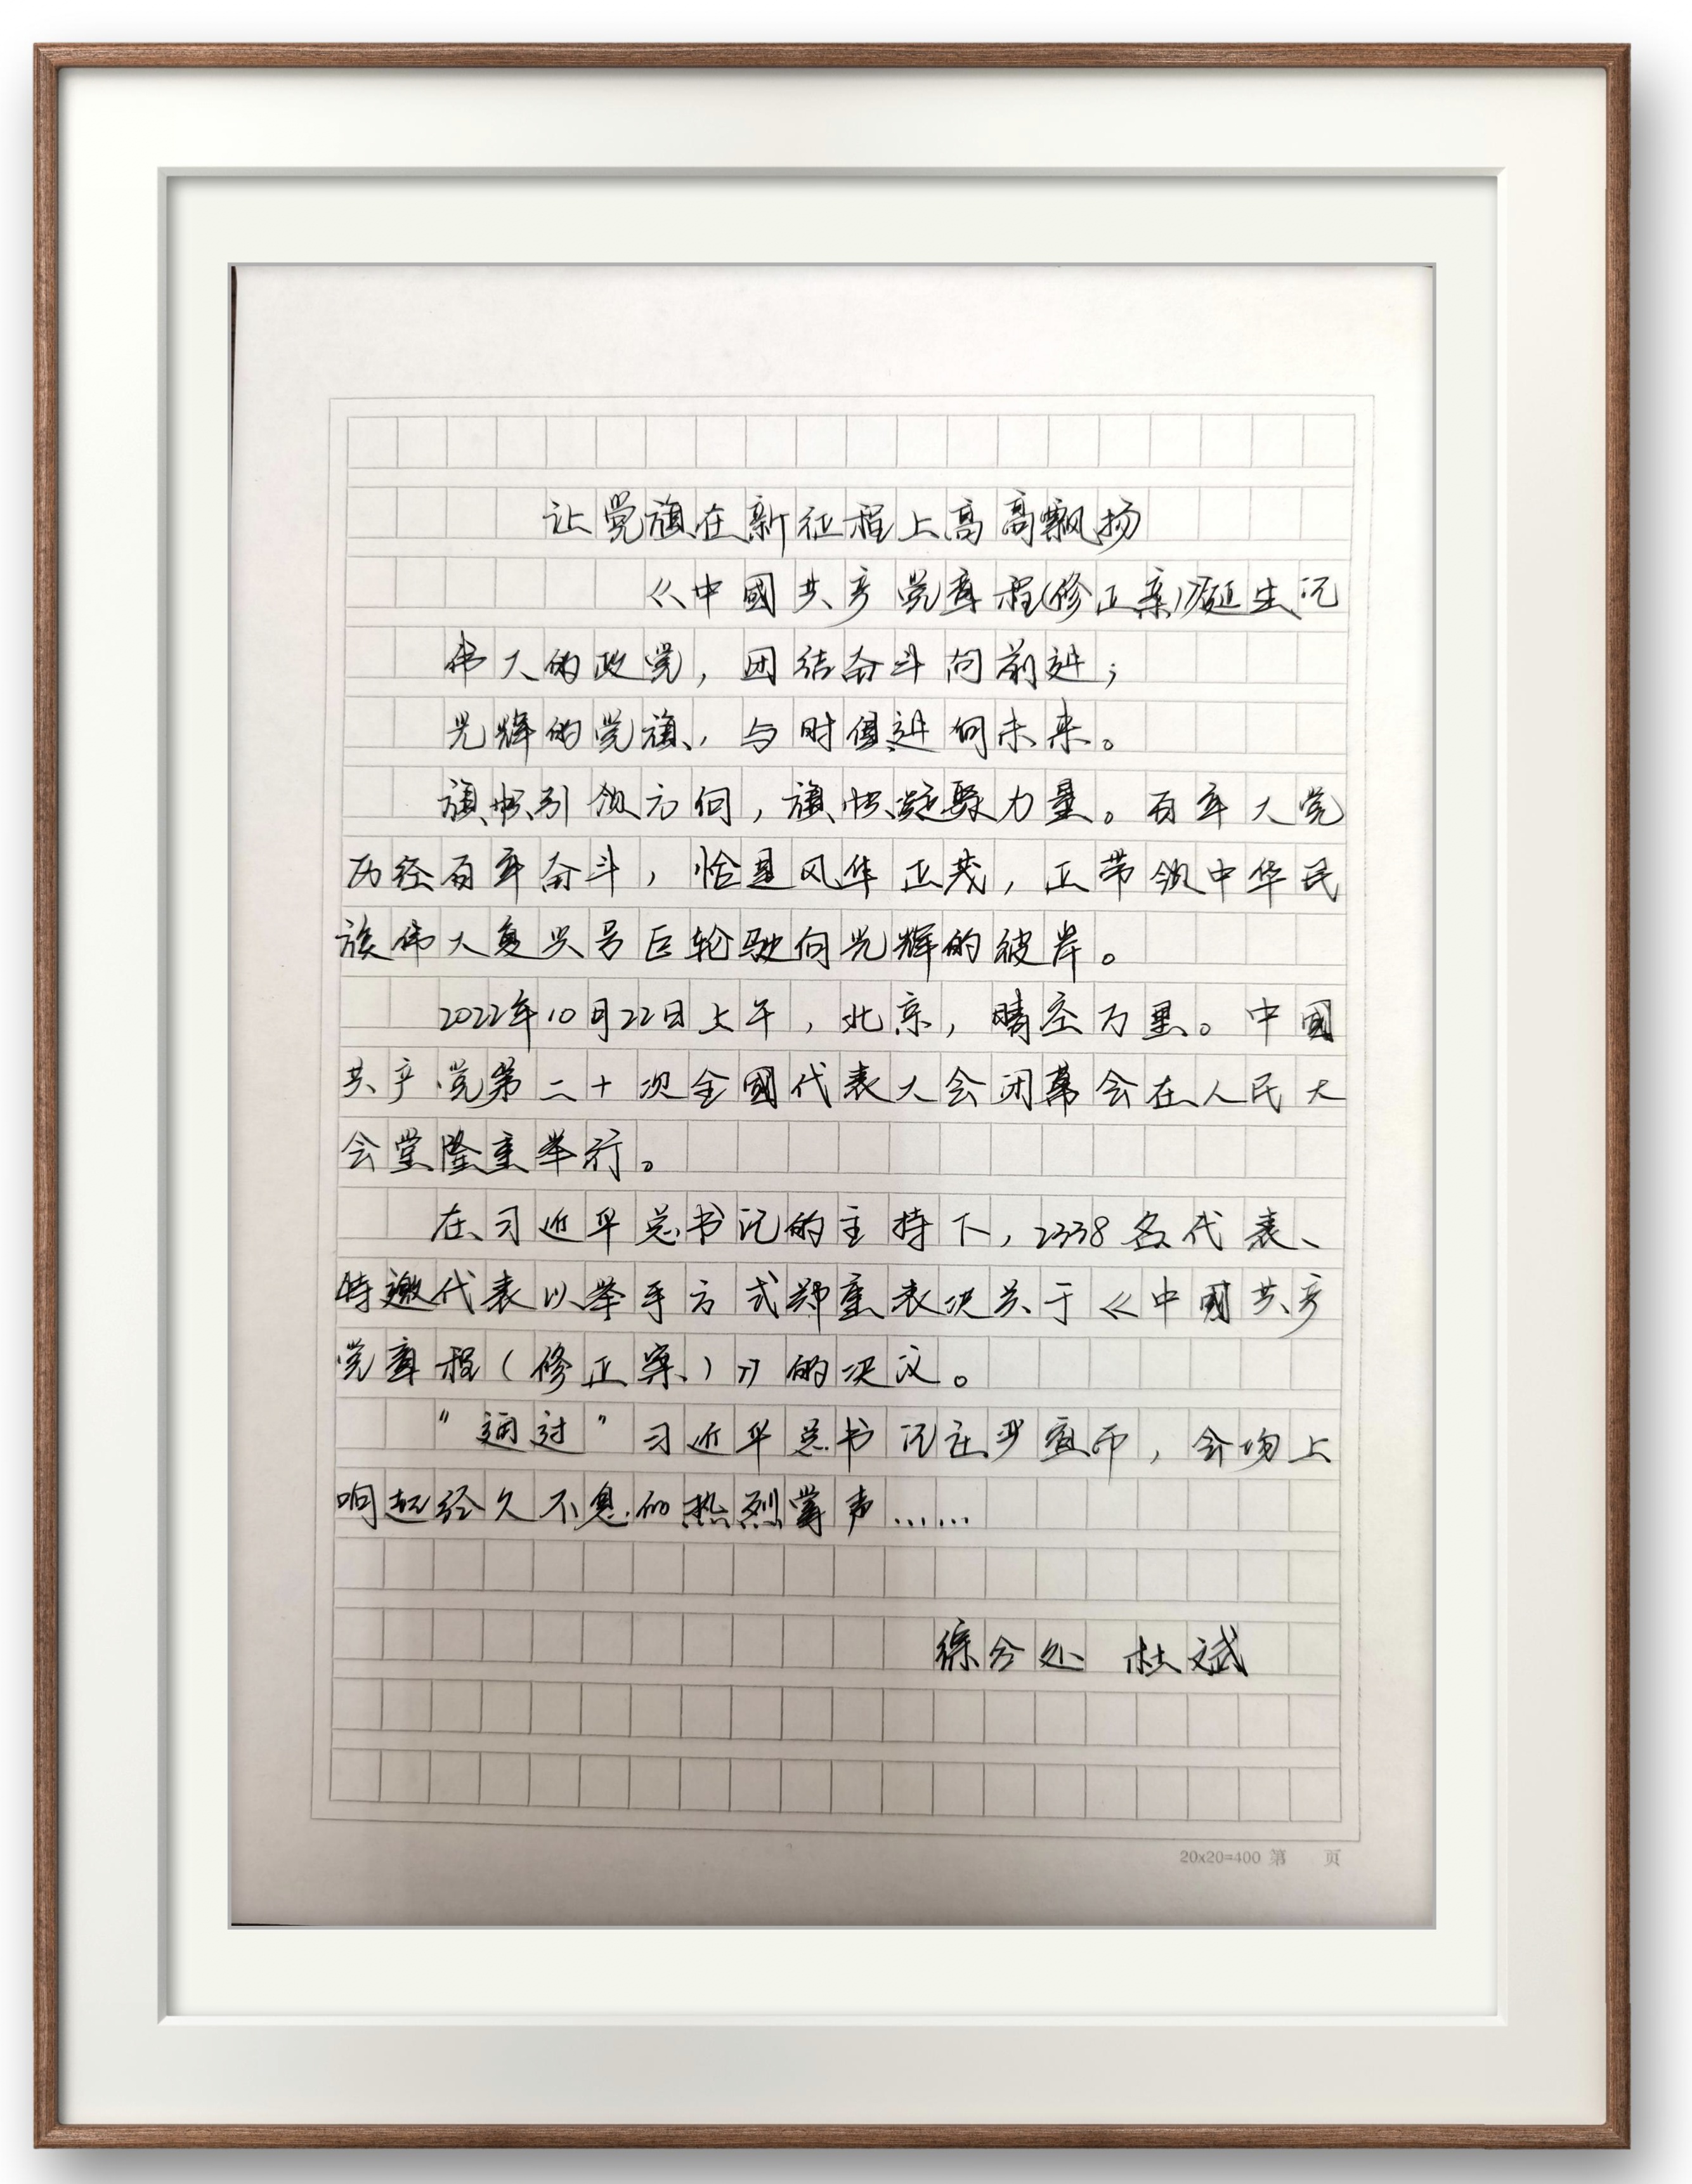 让党旗在新征程上高高飘扬
《中國共产党章程(修正案)》诞生记
伟大的政党，团结奋斗向前进；
光辉的党旗，与时俱进向未来。
旗帜引领方向，旗帜凝聚力量。百年大党
历经百年奋斗，恰是风华正茂，正带领中华民
族伟大复兴号巨轮驶向光辉的彼岸。
2022年10月22日上午，北京，晴空万里。中國
共产党第二十次全國代表大会闭幕会在人民大
会堂隆重举行。
在习近平总书记的主持下，2338名代表、
特邀代表以举手方式郑重表决关于《中國共产
党章程（修正案）》的决议。
“通过”习近平总书记庄严宣布，会场上
响起经久不息的热烈掌声……
综合处 杜斌
20x20=400 第 页